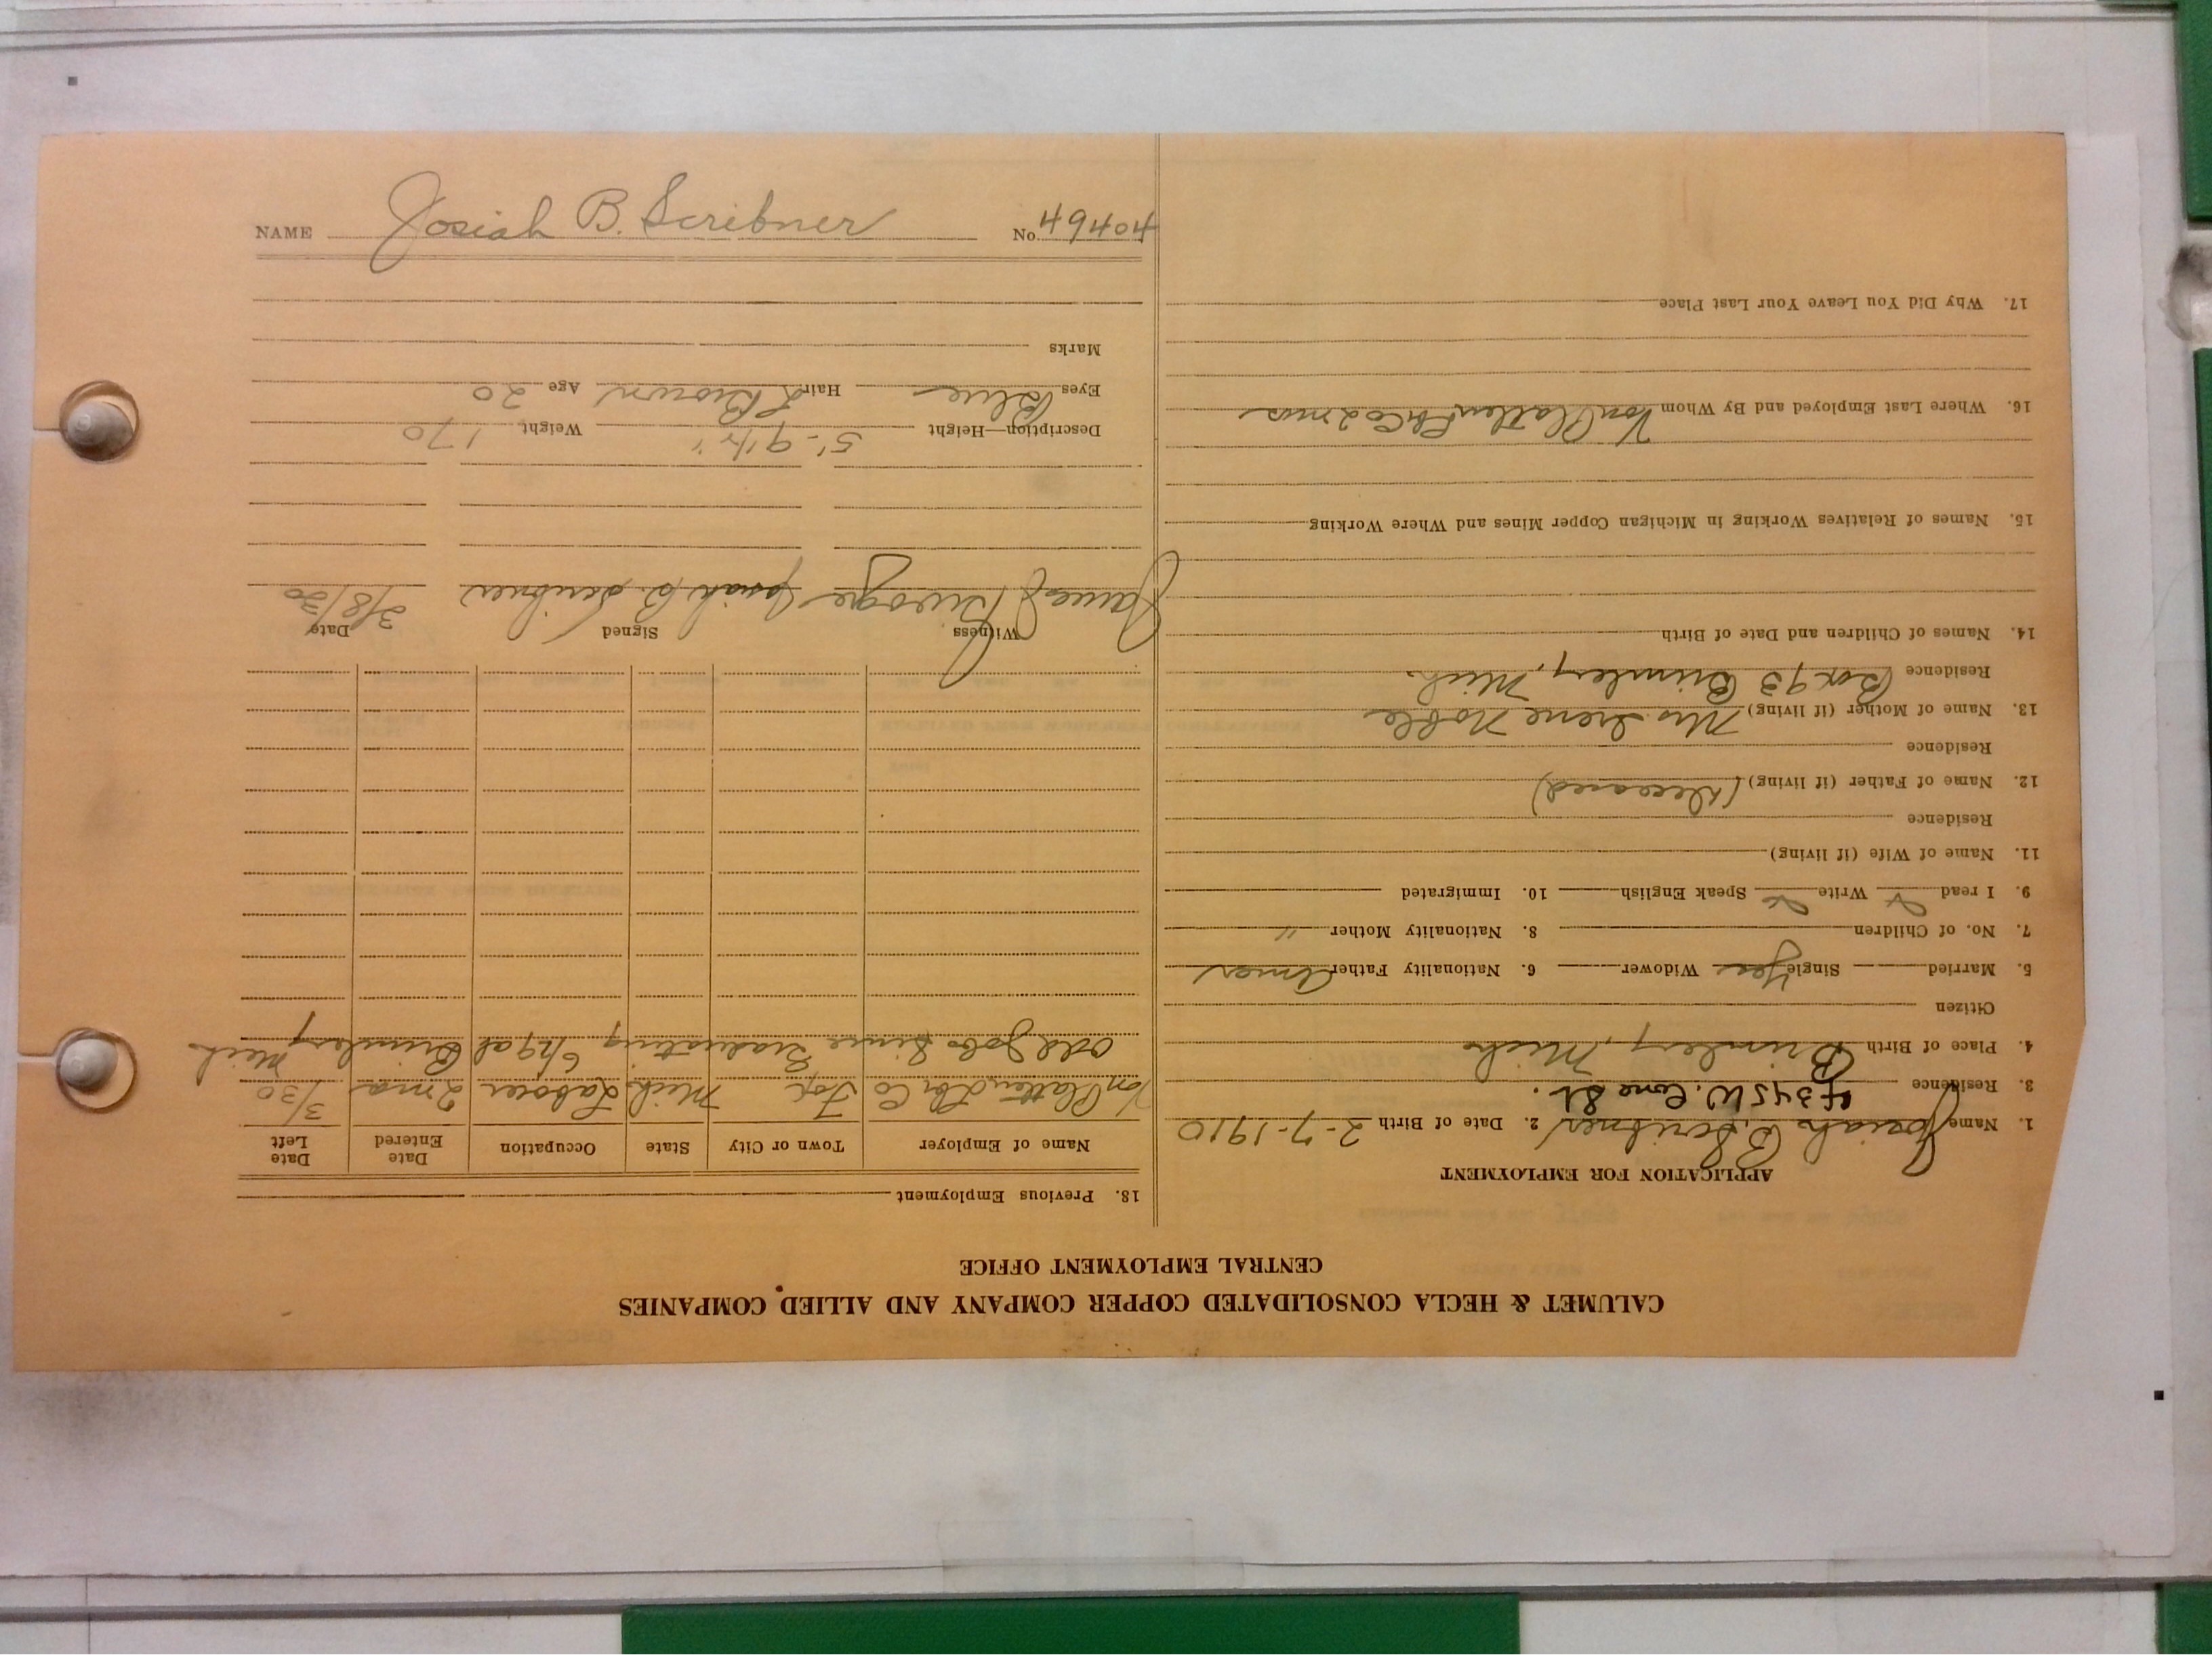 CALUMET & HECLA CONSOLIDATED COPPER COMPANY AND ALLIED COMPANIES
CENTRAL EMPLOYMENT OFFICE
APPLICATION FOR EMPLOYMENT
1. Name Josiah B. Scribner 2. Date of Birth 2-7-1910
3. Residence 4345 W. Cone St.
4. Place of Birth Brimley, Mich
Citizen
5. Married Single Yes Widower 6. Nationality Father Amer
7. No. of Children 8. Nationality Mother "
9. I read Write Speak English 10. Immigrated
11. Name of Wife (if living)
Residence
12. Name of Father (if living) (Deceased)
Residence
13. Name of Mother (if living) Mrs Irene Noble
Residence Box 93 Brimley, Mich.
14. Names of Children and Date of Birth
15. Names of Relatives Working in Michigan Copper Mines and Where Working
16. Where Last Employed and By Whom Von Platten Lbr Co 2 mos
17. Why Did You Leave Your Last Place
18. Previous Employment
Name of Employer Town or City State Occupation Date Entered Date Left
Von Platten Lbr Co Fox Mich Laborer 2 mos 3/30
Odd Jobs Since Graduating at Brimley Mich
Witness Signed Date
James Josiah B. Scribner 3/8/30
Description—Height 5'-9 1/2" Weight 170
Eyes Blue Hair L Brown Age 20
Marks
NAME Josiah B. Scribner No. 49404